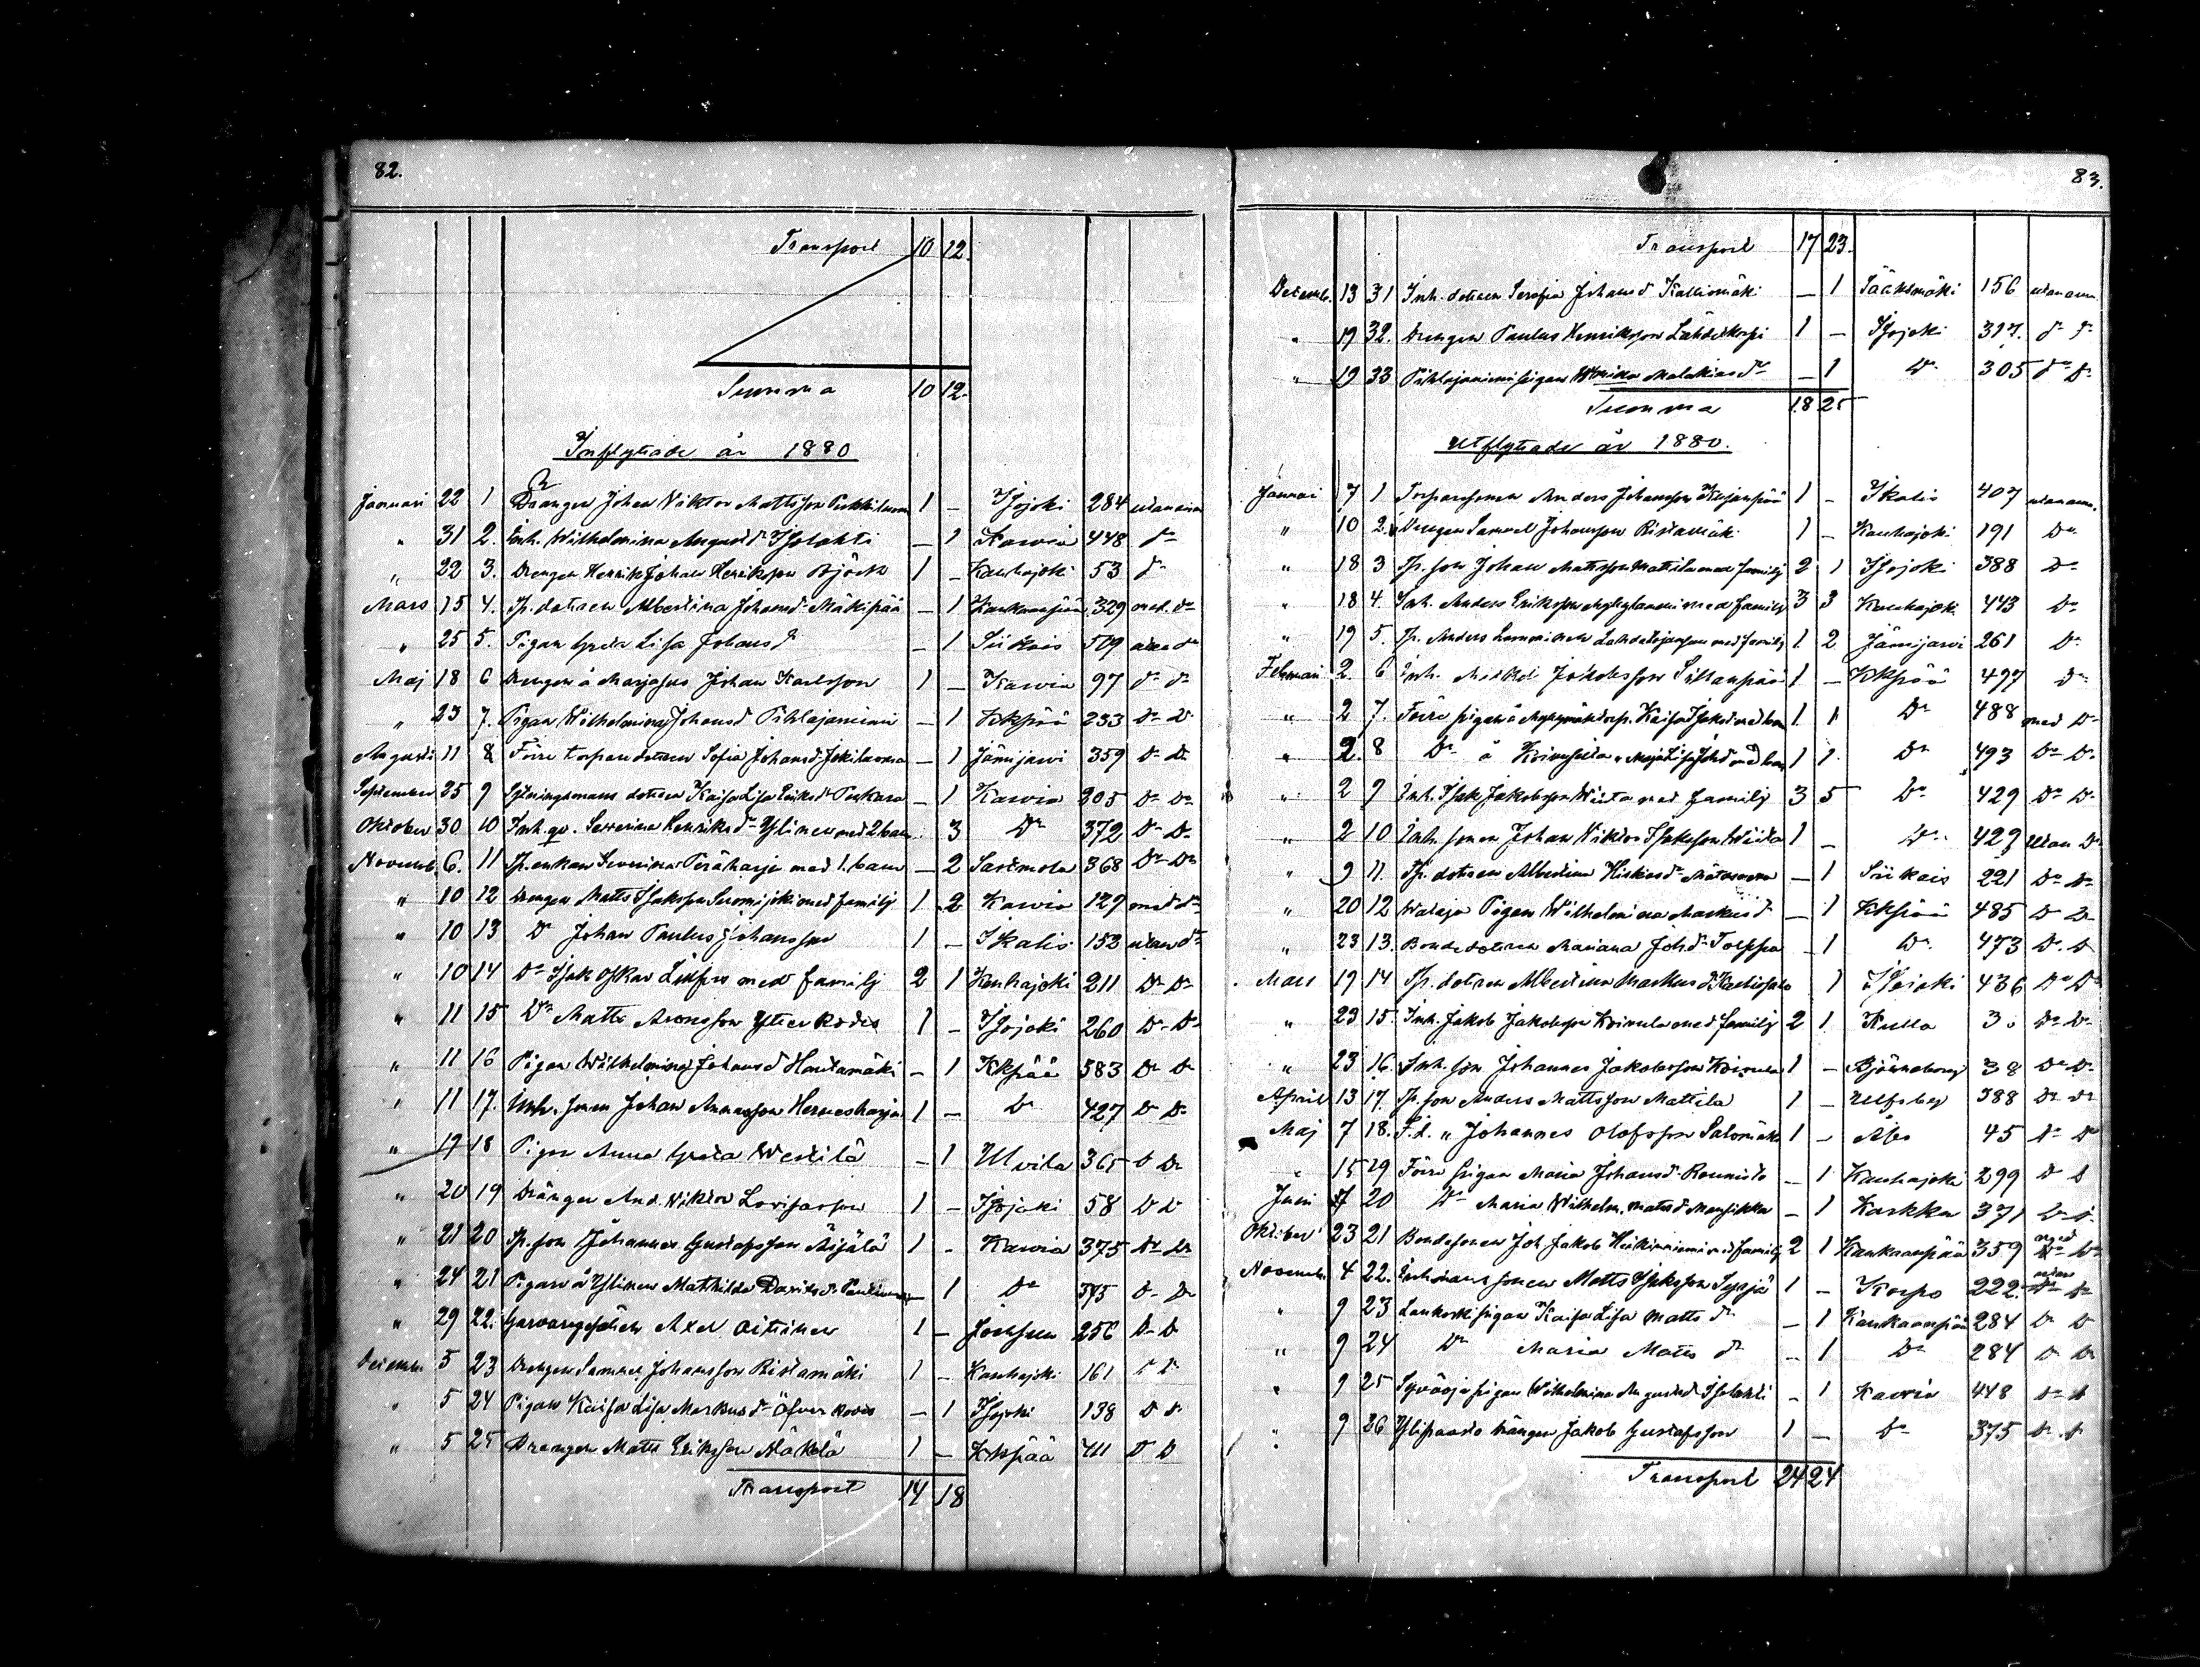 82.
Transport 10 12.
Summa 10 12.
Inflyttade år 1880
Januari 22 1 Drängen Johan Viktor Mattsson 1 – Isojoki 284 utan anm
" 31 2. Inh. Wilhelmina Augustd r Isolahti – 1 Karvia 448 do
" 22 3. Drengen Henrik Johan Henriksson Björk 1 – Kauhajoki 53 do
Mars 15 4. Tp. dottren Albertina Johansd r Mäkipää – 1 Kankaanpää 329 med do
" 25 5. Pigan Greta Lisa Johansd r – 1 Siikais 509 utan do
Maj 18 6 Drengen å Marjasuo Johan Karlsson 1 – Karvia 97 do do
" 23 7. Pigan Wilhelmina Johansd Pihlajaniemi – 1 Kkpää 233 Do Do
Augusti 11 8 Förre torpare dottren Sofia Johansd r – 1 Jämijärvi 359 Do Do
September 25 9 dottren Kaisa Lisa Eriksd r Puskara – 1 Karvia 205 Do Do
Oktober 30 10 Inh. qv. Serverina Henriksd r Ylinen med 2 barn 3 Do 372 Do Do
Novemb. 6. 11 Tp. enkan Severina Peräharju med 1. barn – 2 Sastmola 368 Do Do
" 10 12 Drengen Matts Isaksson med familj 1 2 Karvia 129 med do
" 10 13 Do Johan Paulus Johansson 1 – Ikalis 152 utan do
" 10 14 Do Isak Oskar med familj 2 1 Kauhajoki 211 Do Do
" 11 15 Do Matts Aronsson Ytterkoders 1 – Isojoki 260 Do Do
" 11 16 Pigan Wilhelmina Johansd Hautamäki – 1 Kkpää 583 Do Do
" 11 17. Inh. sonen Johan Hernesharju 1 – Do 427 Do Do
" 17 18 Pigan Anna Greta Westilä – 1 Ulvila 365 Do Do
" 20 19 Drängen And. Viktor 1 – Isojoki 58 Do Do
" 21 20 Tp. son Johannes Gustafsson Äijälä 1 – Karvia 375 Do Do
" 24 21 Pigan å Ylinen Mathilda Davidsd r – 1 Do 373 Do Do
" 29 22. Garvaregesällen Axel Oittinen 1 – Joensuu 256 Do Do
December 5 23 Drengen Samuel Johansson Ristamäki 1 – Kauhajoki 161 Do Do
" 5 24 Pigan Kaisa Lisa Markusd r – 1 Isojoki 138 Do Do
" 5 25 Drengen Matts Eriksson Mäkelä 1 – Kkpää 411 Do Do
Transport 14 18
83.
Transport 17 23.
Decemb. 13 31 Inh. dottren Serafia Johansd Kalliomäki – 1 Sääksmäki 156 utan anm.
" 19 32. Drengen Paulus Henriksson Lähdekorpi 1 – Isojoki 317. do do
" 19 33 Pihlajaniemi pigan Wilhelmina Malakiasd r – 1 Do 305 do do
Summa 18 25
Utflyttade år 1880.
Januari 7 1 Torparesonen Anders Johansson 1 – Ikalis 407 utan anm.
" 10 2. Drengen Samuel Johansson Ristamäki 1 – Kauhajoki 191 Do
" 18 3 Tp. son Johan Mattsson Mattila med familj 2 1 Isojoki 388 Do
" 18 4. Inh. Anders Eriksson med familj 3 3 Kauhajoki 443 Do
" 19 5. Tp. Anders med familj 1 2 Jämijärvi 261 Do
Februari 2. 6 Inh. Mikkel Jakobsson Sillanpää 1 – Kkpää 497 Do
" 2 7. Förre pigan å Kaisa Isaksd med barn 1 1 Do 488 med Do
" 2. 8 Do å Maja Lisa med barn 1 1 Do 493 Do Do
" 2 9 Inh. Isak Jakobsson Wiita med familj 3 5 Do 429 Do Do
" 2 10 Inh. sonen Johan Viktor Isaksson Wiita 1 – Do 429 utan Do
" 9 11. Tp. dottren Albertina Hiskiasd r – 1 Siikais 221 Do Do
" 20 12 Pigan Wilhelmina Markusd – 1 Kkpää 485 Do Do
" 23 13. Bonde dottren Mariana Johd r – 1 Do 473 Do Do
Mars 19 14 Tp. dottren Albertina Markusd r 1 Isojoki 436 Do Do
" 23 15. Inh. Jakob Jakobsson Koivula med familj 2 1 Kulla 3. Do Do
" 23 16. Inh. son Johannes Jakobsson Koivula 1 – Björneborg 38 Do Do
April 13 17. Tp. son Anders Mattsson Mattila 1 – Ulfsby 388 Do Do
Maj 7 18. F.d. " Johannes Olofsson Salomäki 1 – Åbo 45 Do Do
" 15 19 Förre pigan Maria Johansd r Rounisto – 1 Kauhajoki 299 Do Do
Juni 7 20 Do Maria Wilhelm. Mattsd Mansikka – 1 Karkku 371 Do Do
Oktober 23 21 Bondesonen Joh. Jakob Heikinniemi med familj 2 1 Kankaanpää 359 med Do
Novemb. 4 22. sonen Matts Isaksson Syrjä 1 – Korpo 222. utan Do
" 9 23 Lankoski pigan Kaisa Lisa Matts dr – 1 Kankaanpää 284 Do Do
" 9 24 Do Maria Matts dr – 1 Do 284 Do Do
" 9 25 pigan Wilhelmina Augustsd Isolahti – 1 Karvia 448 Do Do
" 9 26 drängen Jakob Gustafsson 1 – Do 375 Do Do
Transport 24 24